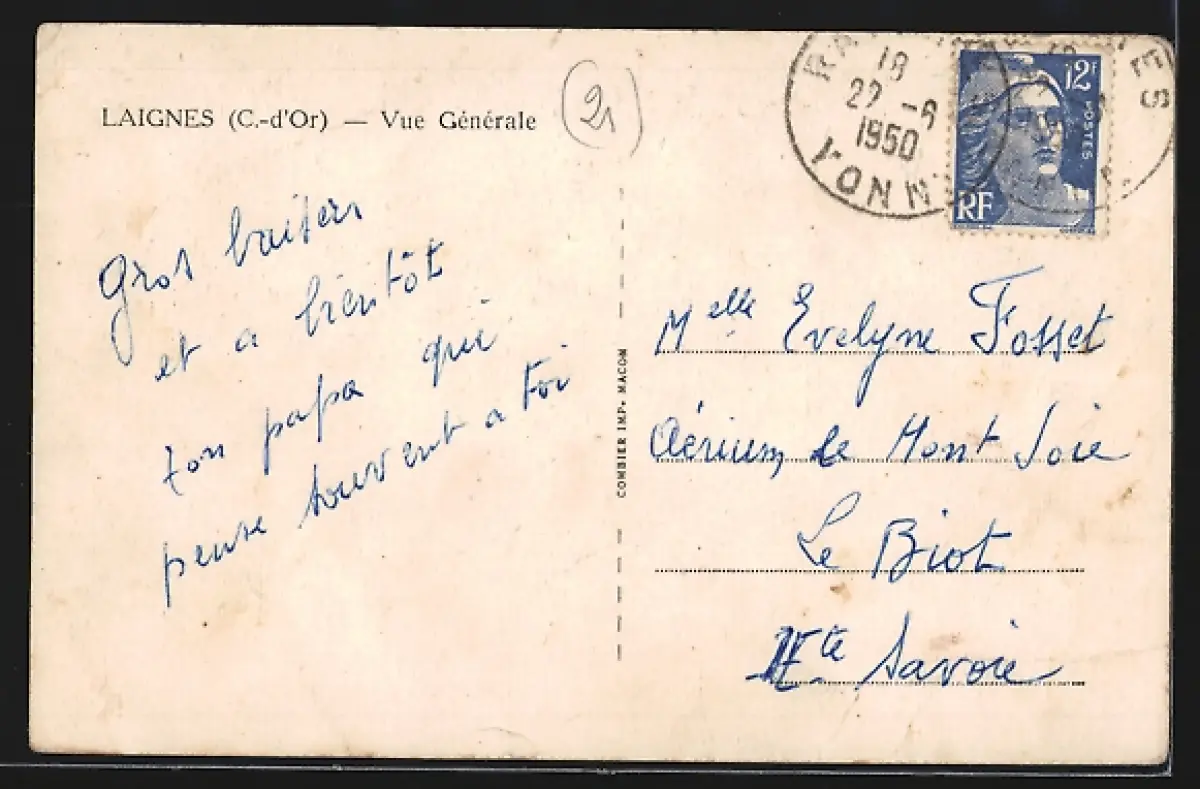 LAIGNES (C.-d'Or) — Vue Générale
21
Gros baisers
et a bientôt
ton papa qui
pense souvent a toi
COMBIER IMP. MACON
18
22 -6
1950
YONNE
12F
POSTES
RF
Melle Evelyne Fosset
Aérium de Mont Joie
Le Biot
Hte Savoie